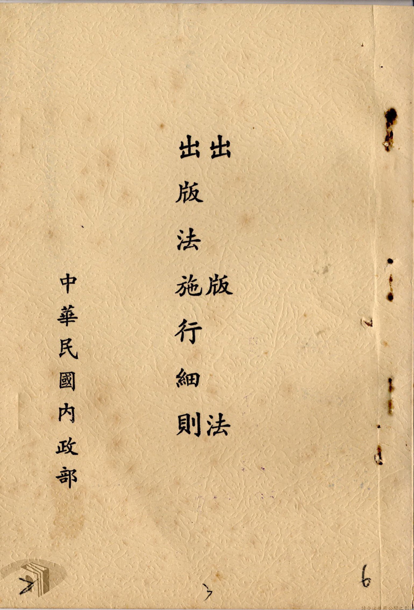 出版法
出版法施行細則
中華民國內政部
3
6